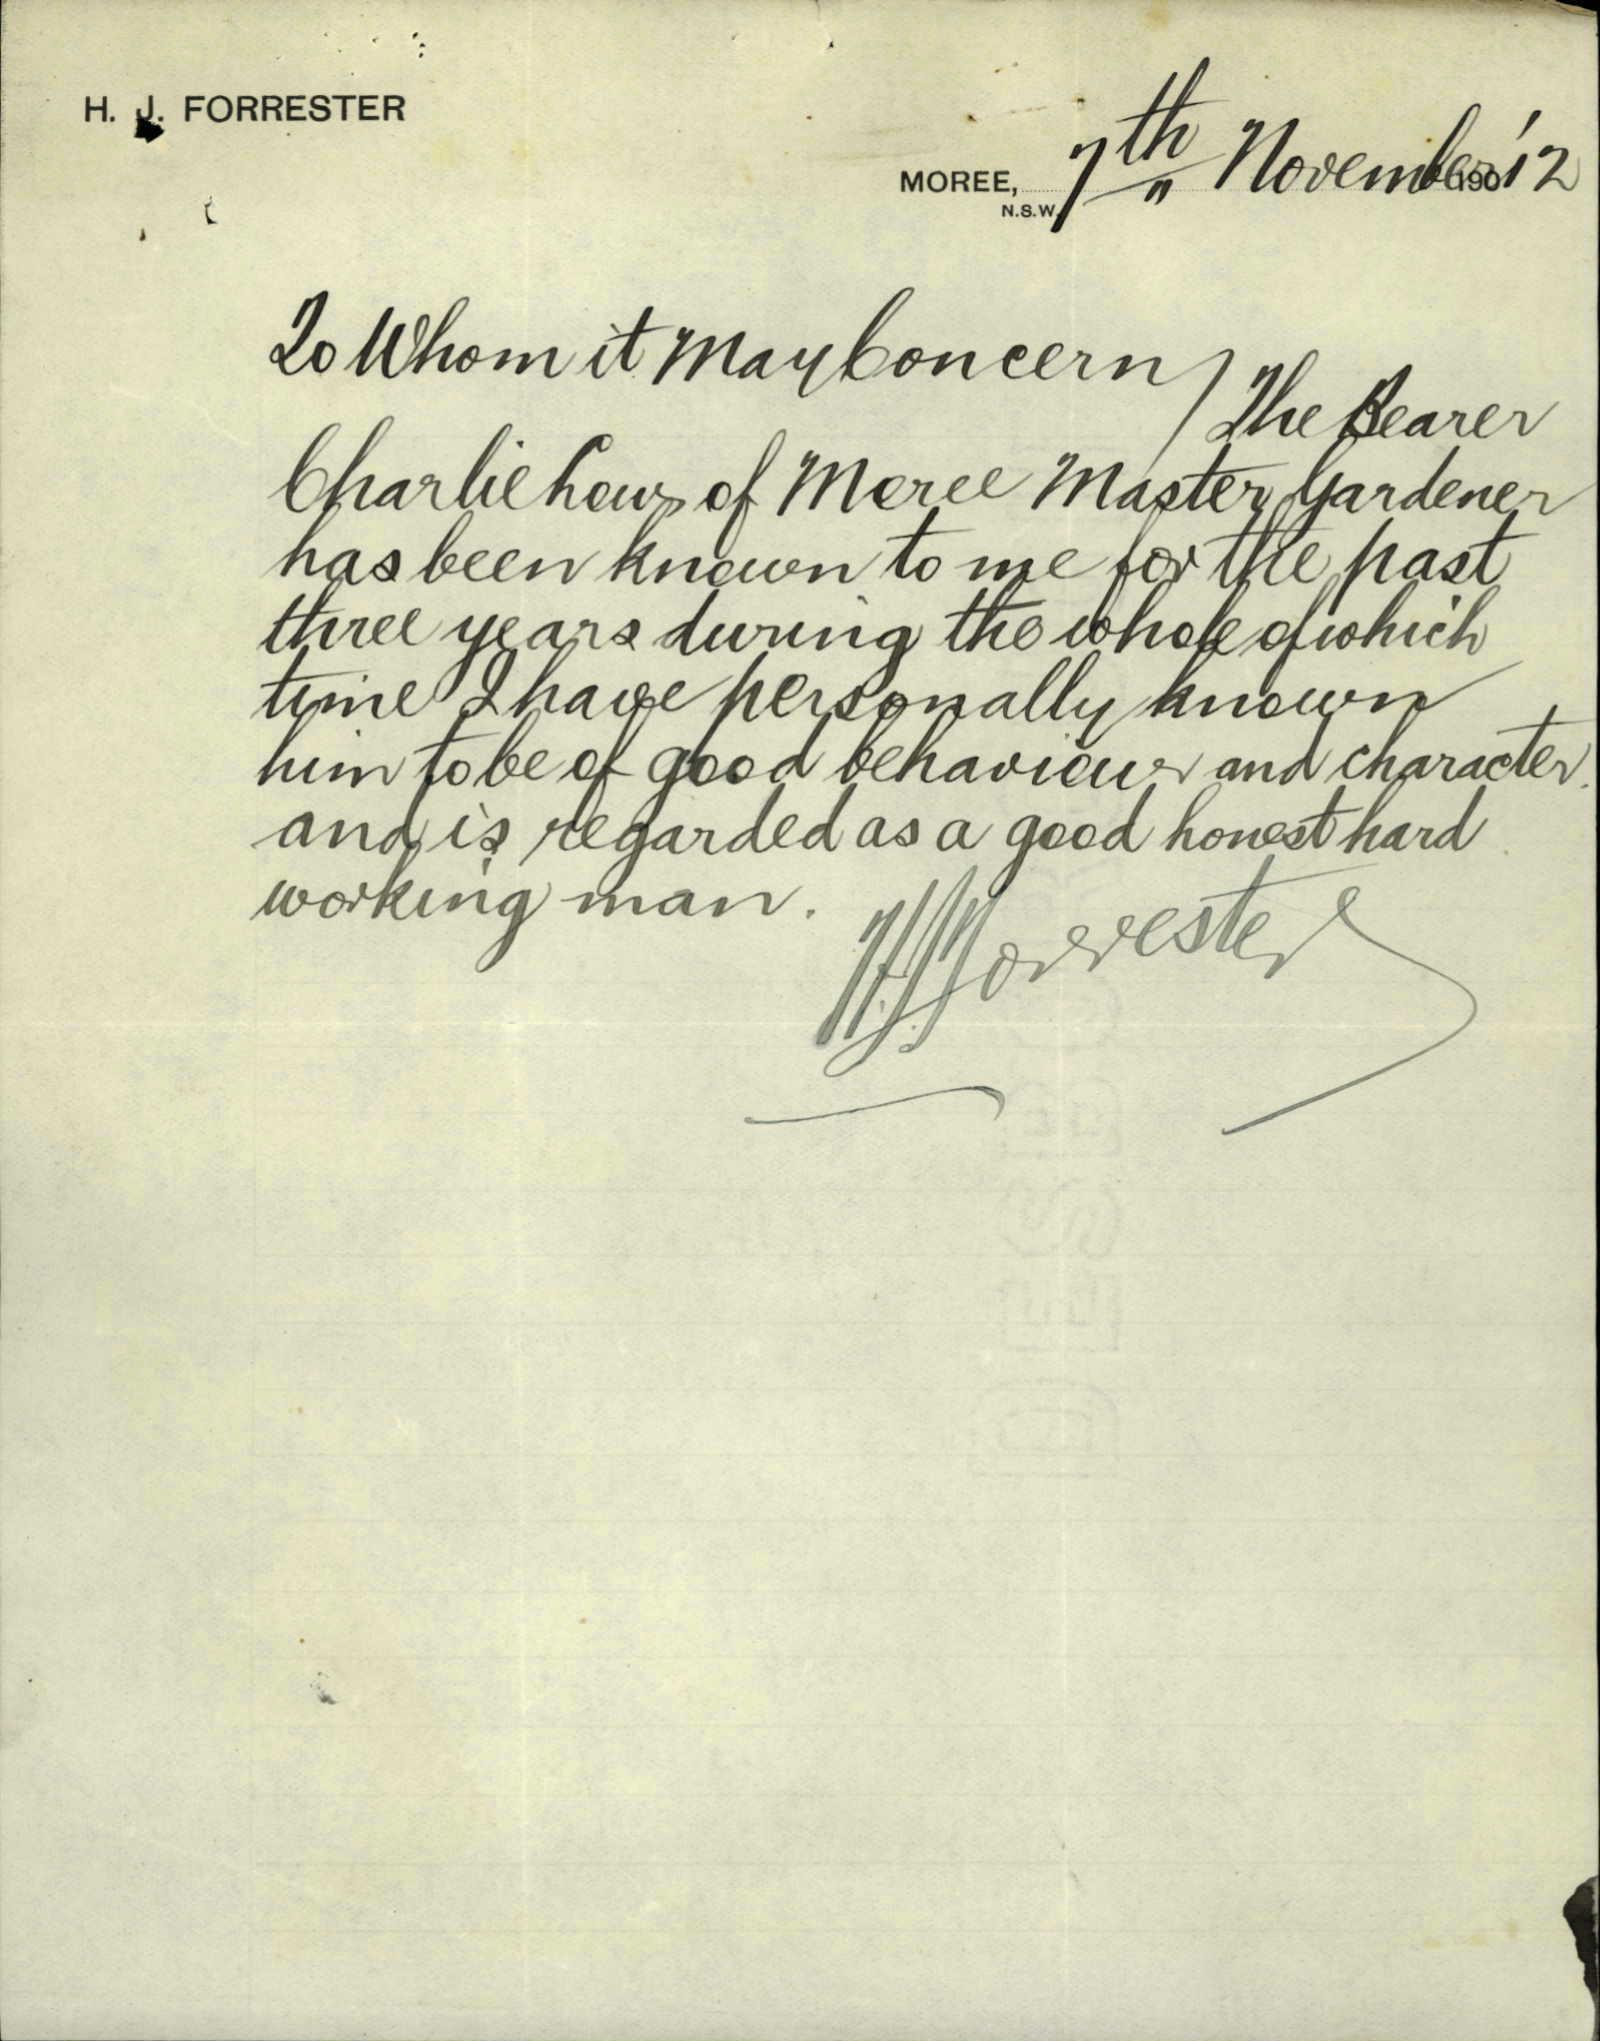 H. J. FORRESTER
MOREE, 7th November 190'12
N.S.W.
To Whom it May Concern
The Bearer
Charlie of Moree Master Gardener
has been known to me for the past
three years during the whole of which
time I have personally known
him to be of good behaviour and character.
and is regarded as a good honest hard
working man.
H.J. Forrester